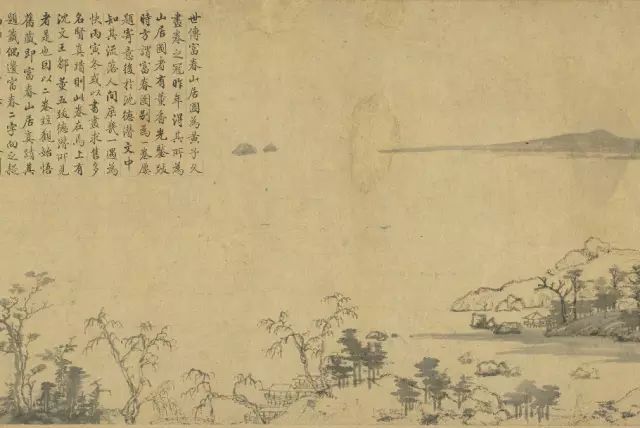 世傳富春山居圖為黃子久
畫卷之冠昨年得其所為
山居圖者有董香光鑒跋
時方謂富春圖別為一卷屢
題寄意後於沈德潛文中
知其流落人間庶幾一遇為
快丙寅冬或以書畫求售多
名賢真蹟則此卷在焉上有
沈文王鄒董五跋德潛所見
者是也因以二卷觀始悟
舊藏即富春山居真蹟其
題籤偶遺富春二字向之疑